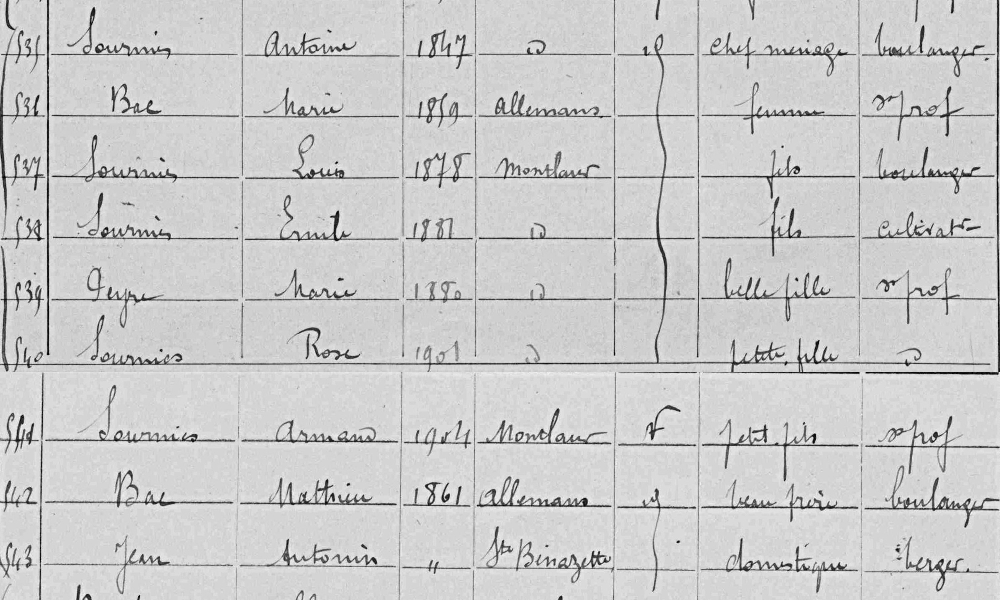 535 Sournies Antoine 1847 id id chef menage boulanger.
536 Bac Marie 1859 Allemans. femme s prof
537 Sournies Louis 1878 Montlaur fils boulanger
538 Sournies Emile 1881 id fils cultivatr
539 Peyre Marie 1880 id belle fille s prof
540 Sournies Rose 1901 id petite fille id
541 Sournies Armand 1904 Montlaur F petit fils s prof
542 Bac Mathieu 1861 Allemans id beau frère boulanger
543 Jean Antonin " Ste Bénazette domestique berger.